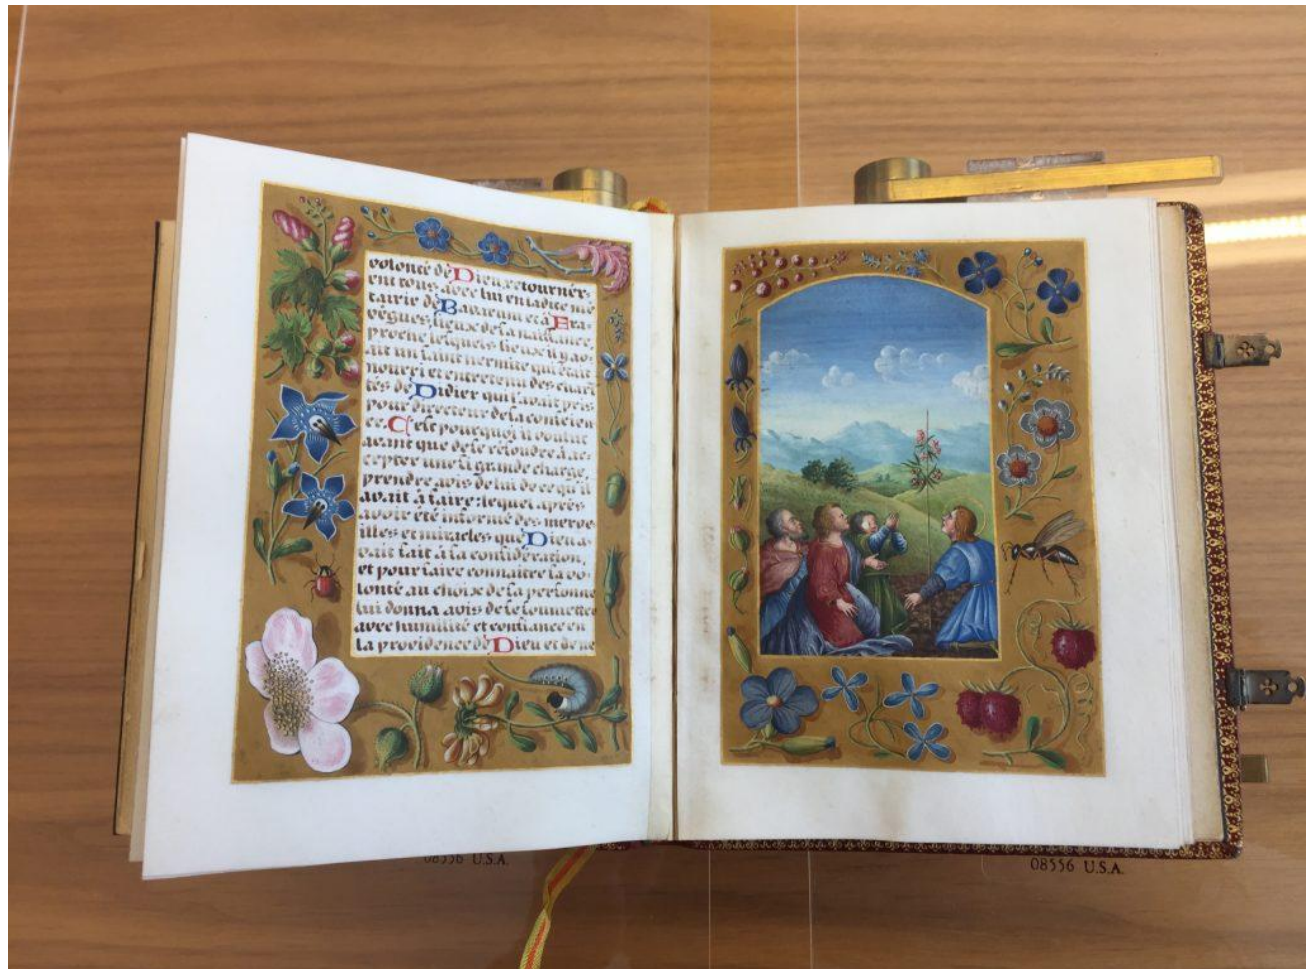 volonté de Dieu, retournèr-
ent tous avec lui en ladite mé-
tairie de Bavarum et à Bra-
vègues, lieux de sa naissance,
proche lesquels lieux il y av-
ait un saint hermite qui était
nourri et entretenu des chari-
tés de Didier qui l'avait pris
pour directeur de sa conscien
ce. C'est pourquoi il voulut
avant que de se résoudre à ac-
cepter une si grande charge,
prendre avis de lui de ce qu'il
avait à faire: lequel après
avoir été informé des merve-
illes et miracles que Dieu a-
vait fait à sa considération,
et pour faire connaître sa vo-
lonté au choix de sa personne
lui donna avis de se soumettre
avec humilité et confiance en
la providence de Dieu et de se
08556 U.S.A.
08556 U.S.A.